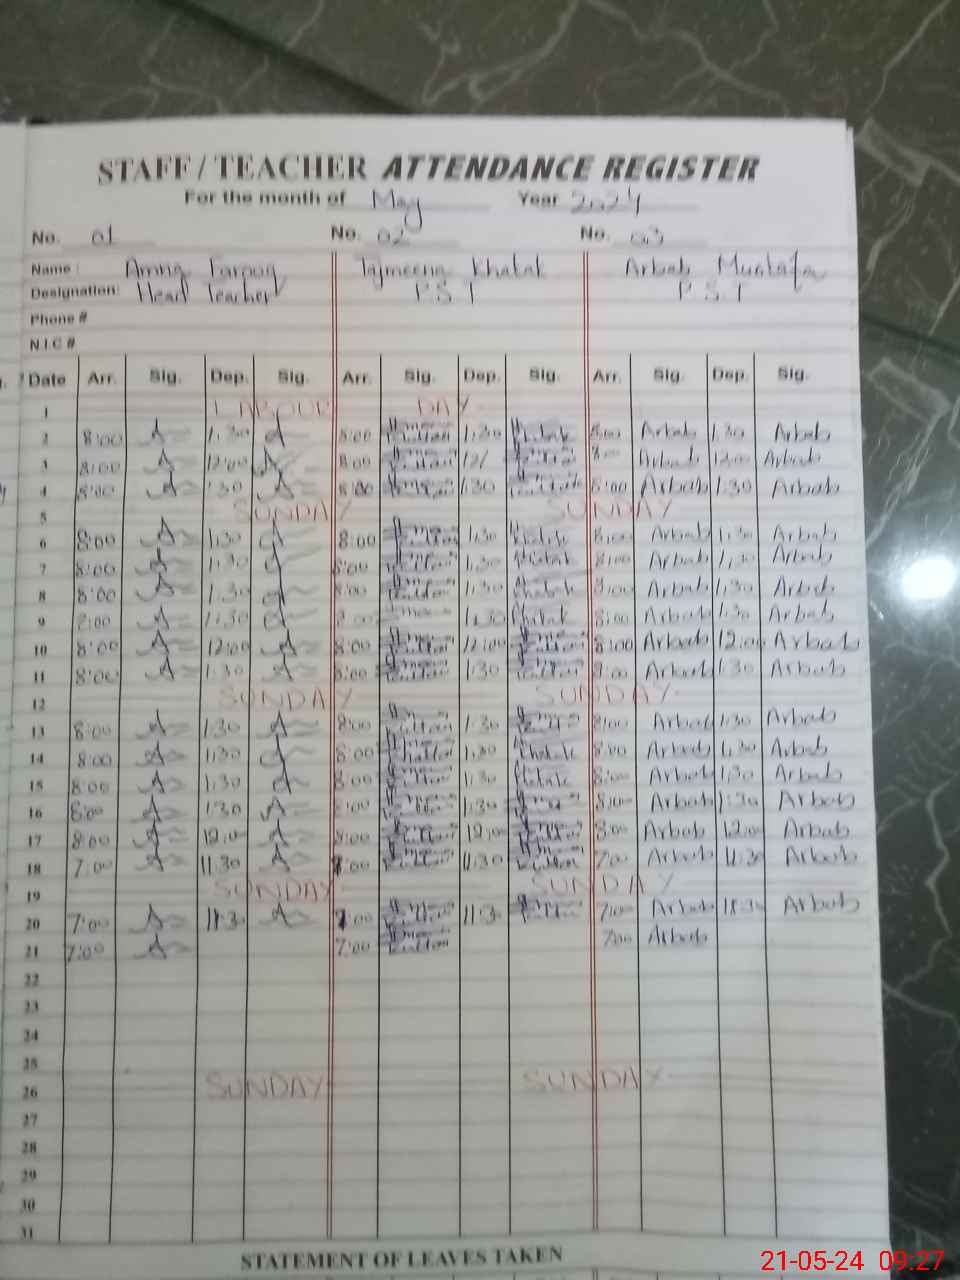 STAFF / TEACHER ATTENDANCE REGISTER
For the month of May Year 2024
No. 01 No. 02 No. 03
Name : Amna Farooq Tajmeena Khatak Arbab Mustafa
Designation: Head Teacher P S T P.S.T
Phone #
N.I.C #
Date Arr. Sig. Dep. Sig. Arr. Sig. Dep. Sig. Arr. Sig. Dep. Sig.
1 LABOUR DAY
2 8:00 1:30 8:00 1:30 Khatak 8:00 Arbab 1:30 Arbab
3 8:00 12:00 8:00 12/ Arbab 12:00 Arbab
4 8:00 1:30 8:00 1:30 8:00 Arbab 1:30 Arbab
5 SUNDAY SUNDAY
6 8:00 1:30 8:00 1:30 Khatak 8:00 Arbab 1:30 Arbab
7 8:00 1:30 8:00 1:30 Khatak 8:00 Arbab 1:30 Arbab
8 8:00 1:30 8:00 1:30 Khatak 8:00 Arbab 1:30 Arbab
9 8:00 1:30 8:00 1:30 Khatak 8:00 Arbab 1:30 Arbab
10 8:00 12:00 8:00 12:00 8:00 Arbab 12:00 Arbab
11 8:00 1:30 8:00 1:30 8:00 Arbab 1:30 Arbab
12 SUNDAY SUNDAY
13 8:00 1:30 8:00 1:30 8:00 Arbab 1:30 Arbab
14 8:00 1:30 8:00 1:30 Khatak 8:00 Arbab 1:30 Arbab
15 8:00 1:30 8:00 1:30 Khatak 8:00 Arbab 1:30 Arbab
16 8:00 1:30 8:00 1:30 8:00 Arbab 1:30 Arbab
17 8:00 12:00 8:00 12:00 8:00 Arbab 12:00 Arbab
18 7:00 11:30 7:00 11:30 7:00 Arbab 11:30 Arbab
19 SUNDAY SUNDAY
20 7:00 11:30 7:00 11:30 7:00 Arbab 11:30 Arbab
21 7:00 7:00 7:00 Arbab
22
23
24
25
26 SUNDAY SUNDAY
27
28
29
30
31
STATEMENT OF LEAVES TAKEN
21-05-24 09:27